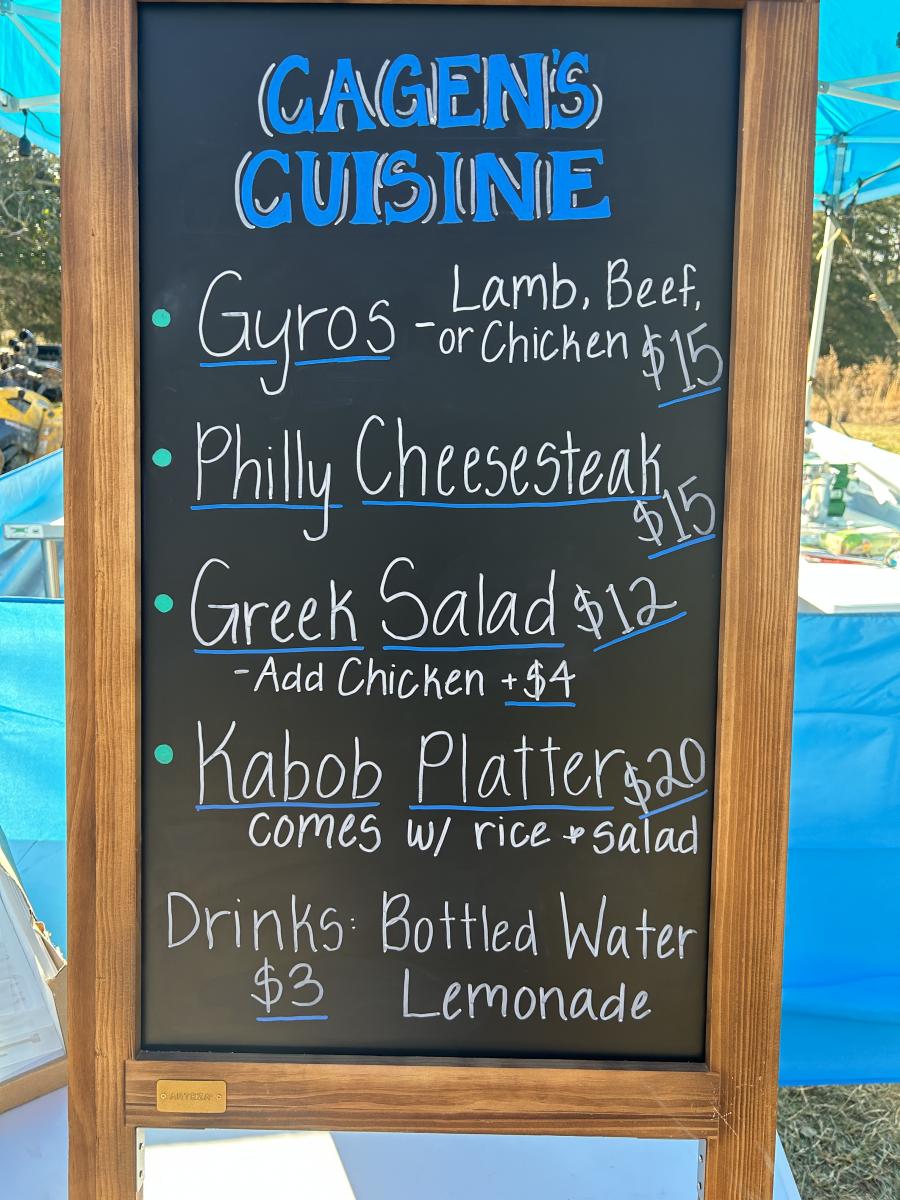 CAGEN'S
CUISINE
Gyros - Lamb, Beef,
or Chicken $15
Philly Cheesesteak
$15
Greek Salad $12
-Add Chicken +$4
Kabob Platter $20
comes w/ rice + salad
Drinks: Bottled Water
$3 Lemonade
ARTEZA